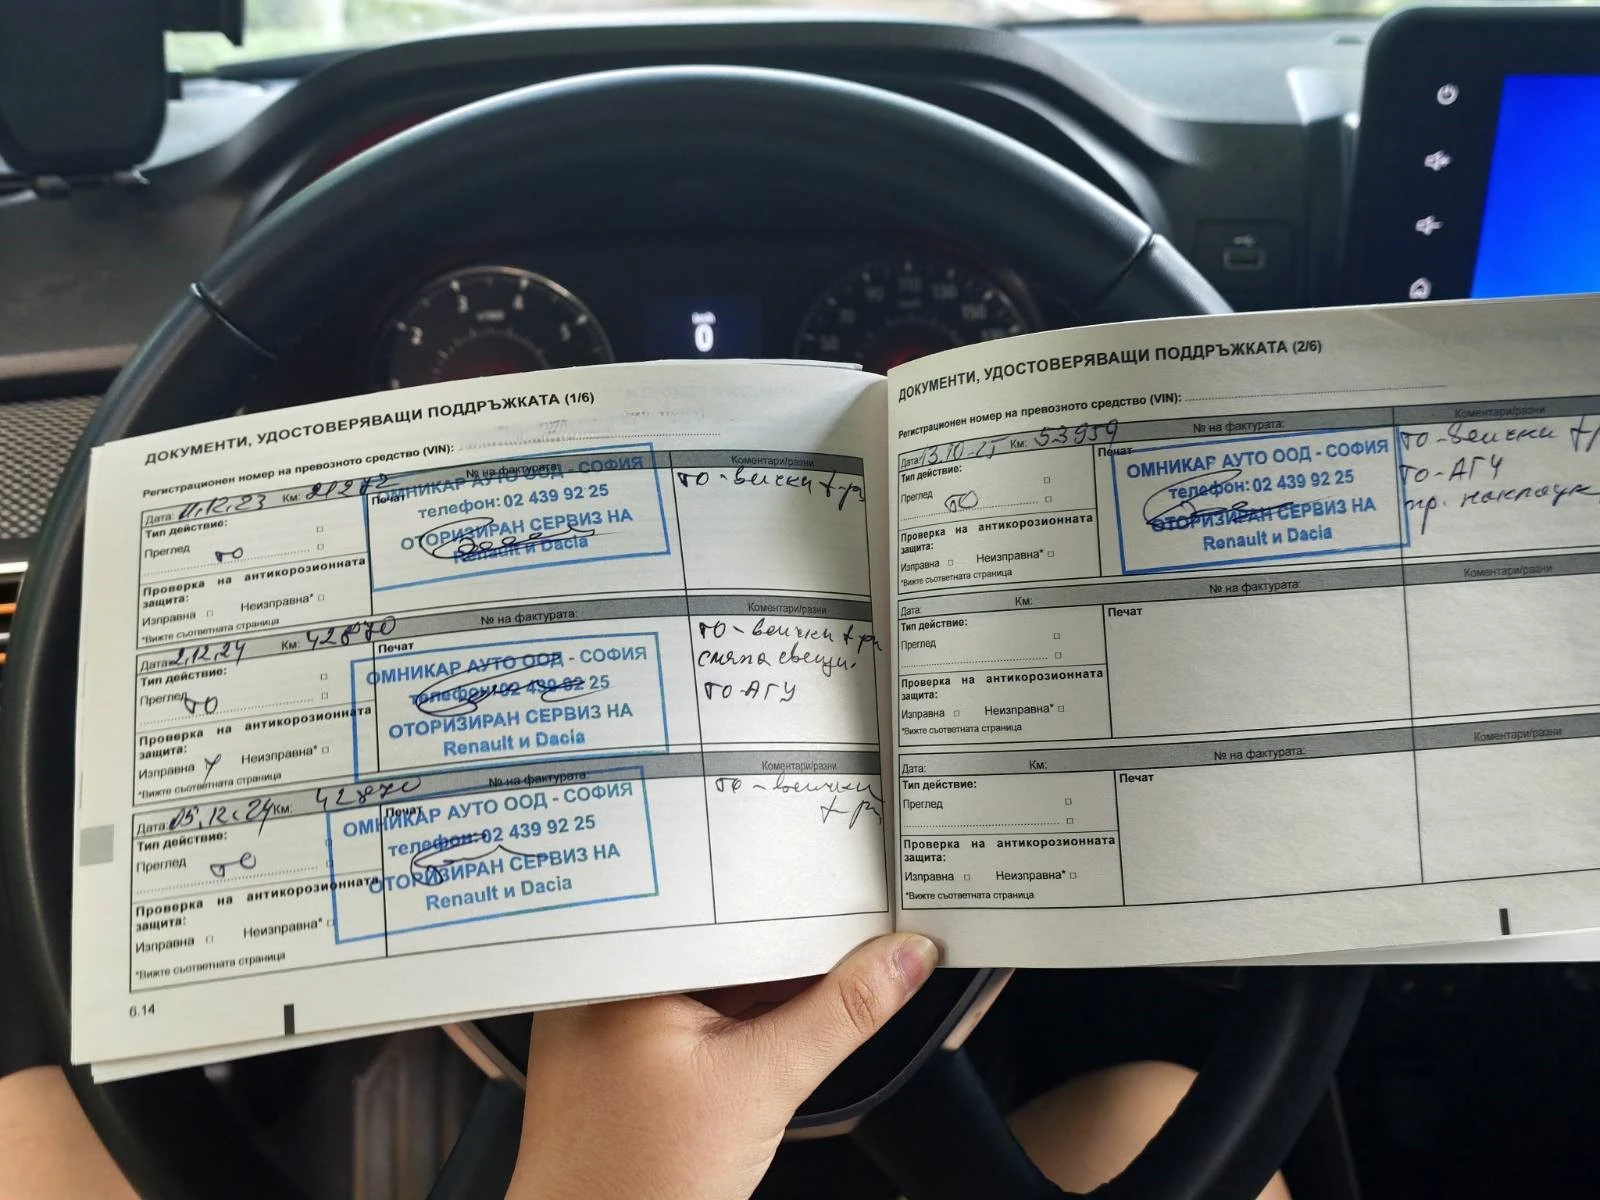 ДОКУМЕНТИ, УДОСТОВЕРЯВАЩИ ПОДДРЪЖКАТА (1/6)
Регистрационен номер на превозното средство (VIN):
Дата: 11.12.23 Км: 21272 № на фактурата:
Коментари/разни
Тип действие:
Преглед ТО
Проверка на антикорозионната
защита:
Изправна Неизправна*
*Вижте съответната страница
Печат
ОМНИКАР АУТО ООД - СОФИЯ
телефон: 02 439 92 25
ОТОРИЗИРАН СЕРВИЗ НА
Renault и Dacia
ТО - всички
Дата: 2.12.24 Км: 42870 № на фактурата:
Коментари/разни
Тип действие:
Преглед ТО
Проверка на антикорозионната
защита:
Изправна Неизправна*
*Вижте съответната страница
Печат
ОМНИКАР АУТО ООД - СОФИЯ
телефон: 02 439 92 25
ОТОРИЗИРАН СЕРВИЗ НА
Renault и Dacia
ТО - всички
смяна свещи.
ТО-АГУ
Дата: 05.12.24 Км: 42870 № на фактурата:
Коментари/разни
Тип действие:
Преглед ТО
Проверка на антикорозионната
защита:
Изправна Неизправна*
*Вижте съответната страница
Печат
ОМНИКАР АУТО ООД - СОФИЯ
телефон: 02 439 92 25
ОТОРИЗИРАН СЕРВИЗ НА
Renault и Dacia
ТО - всички
6.14
ДОКУМЕНТИ, УДОСТОВЕРЯВАЩИ ПОДДРЪЖКАТА (2/6)
Регистрационен номер на превозното средство (VIN):
Дата: 13.10.25 Км: 53959 № на фактурата:
Коментари/разни
Тип действие:
Преглед ТО
Проверка на антикорозионната
защита:
Изправна Неизправна*
*Вижте съответната страница
Печат
ОМНИКАР АУТО ООД - СОФИЯ
телефон: 02 439 92 25
ОТОРИЗИРАН СЕРВИЗ НА
Renault и Dacia
ТО - всички
ТО-АГУ
пр.
Дата: Км: № на фактурата:
Коментари/разни
Тип действие:
Преглед
Проверка на антикорозионната
защита:
Изправна Неизправна*
*Вижте съответната страница
Печат
Дата: Км: № на фактурата:
Коментари/разни
Тип действие:
Преглед
Проверка на антикорозионната
защита:
Изправна Неизправна*
*Вижте съответната страница
Печат
2 3 4 5
km/h
0
50 70 90 110 130 150